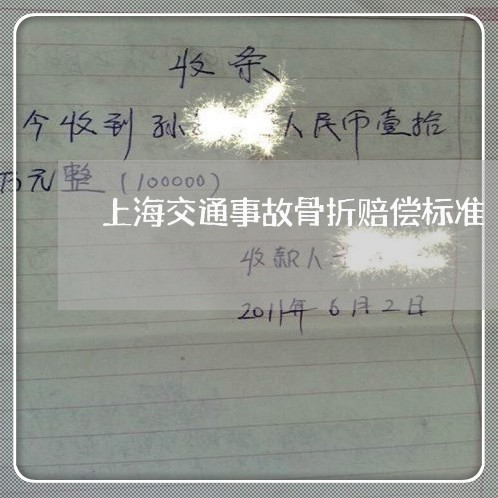 收条
今收到孙 人民币壹拾
万元整(100000)
上海交通事故骨折赔偿标准
收款人
2011年6月2日